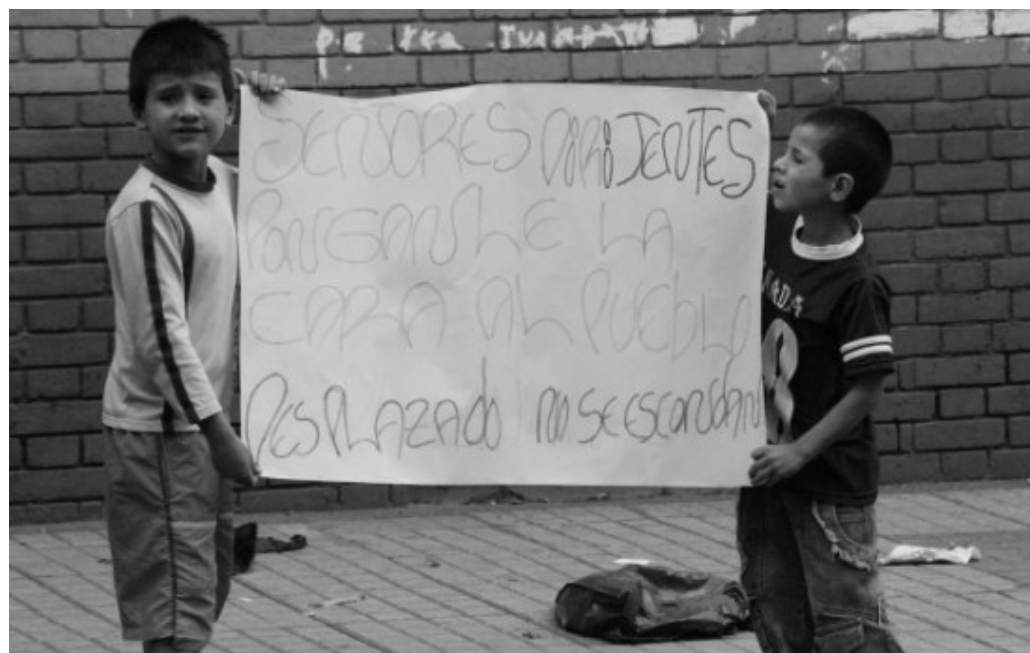 SENSORES DiRiJENTES
PONGANLE LA
CARA AL PUEBLO
DESPLAZADO NO SE ESCONDAN